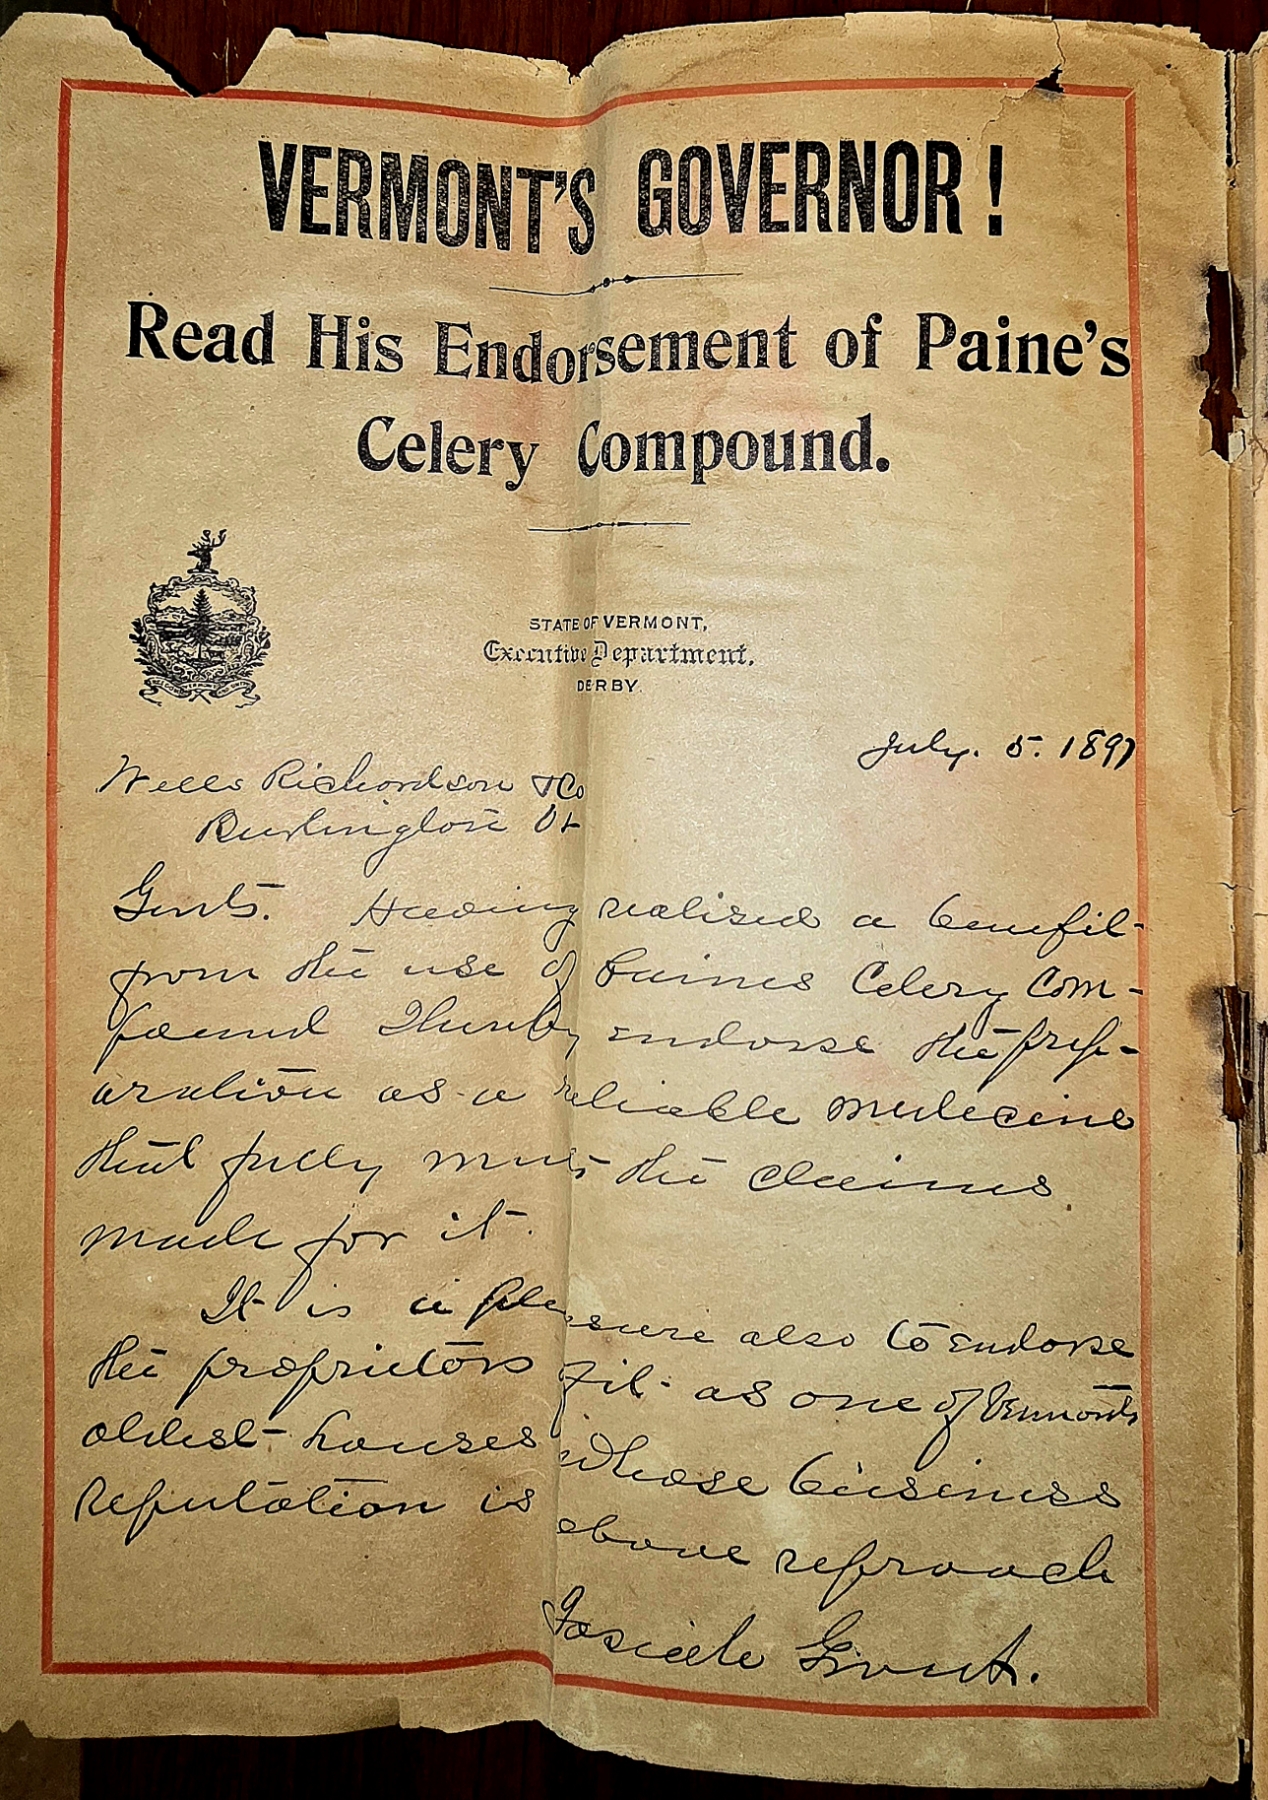 VERMONT'S GOVERNOR!
Read His Endorsement of Paine's
Celery Compound.
STATE OF VERMONT,
Executive Department.
DERBY.
July. 5. 1897
Wells Richardson & Co
Burlington Vt
Gents. Having realized a benefit
from the use of Paines Celery Com-
pound I hereby endorse the prep-
aration as a reliable medicine
that fully meets the claims
made for it.
It is a pleasure also to endorse
the proprietors of it as one of Vermonts
oldest houses whose business
reputation is above reproach
Josiah Grout.